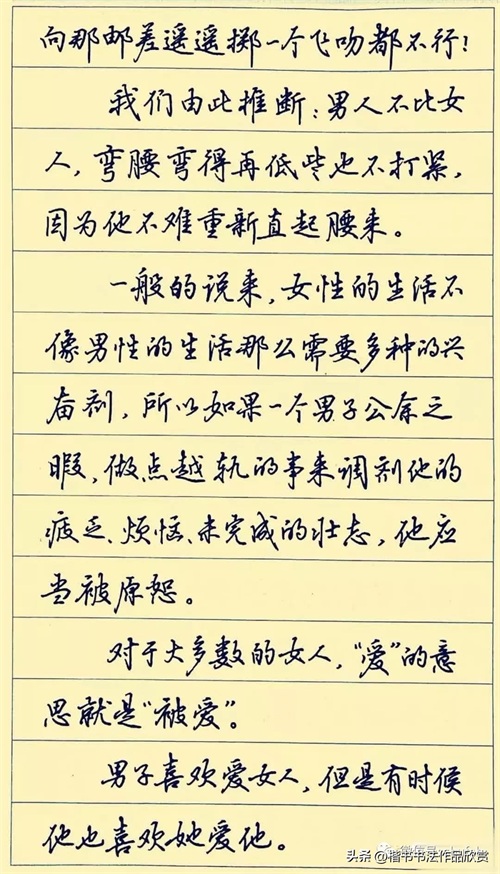 向那邮差遥遥掷一个飞吻都不行!
我们由此推断:男人不比女
人,弯腰弯得再低些也不打紧,
因为他不难重新直起腰来。
一般的说来,女性的生活不
像男性的生活那么需要多种的兴
奋剂,所以如果一个男子公余之
暇,做点越轨的事来调剂他的
疲乏、烦恼、未完成的壮志,他应
当被原恕。
对于大多数的女人,“爱”的意
思就是“被爱”。
男子喜欢爱女人,但是有时候
他也喜欢她爱他。
头条 @楷书书法作品欣赏